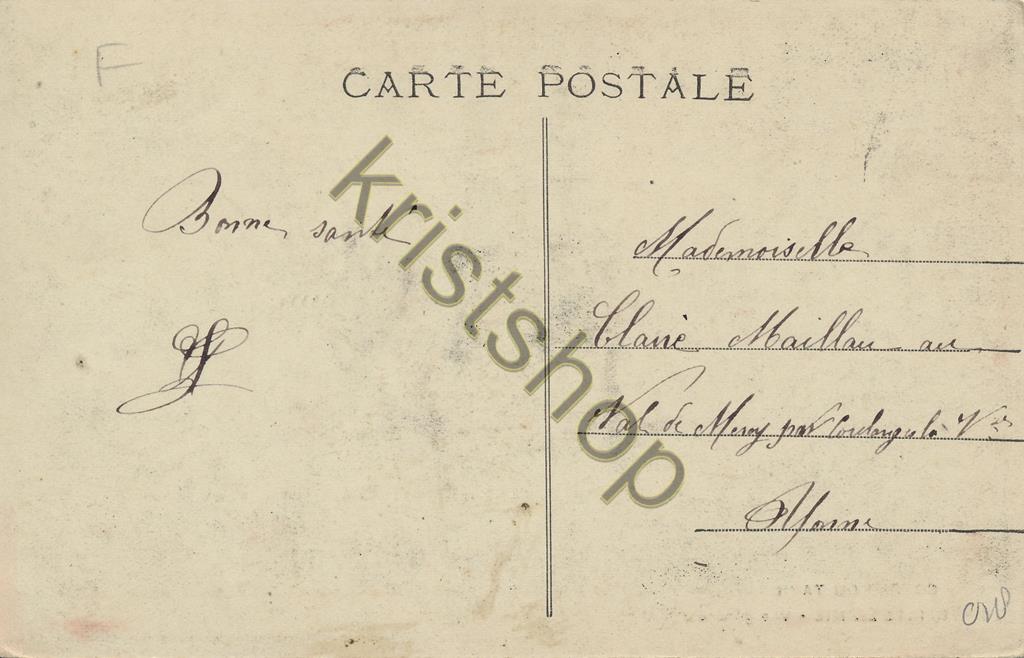 F
CARTE POSTALE
Bonne santé
kristshop
Mademoiselle
Claire Maillau au
Val de Mercy par Coulanges la V^se
Yonne